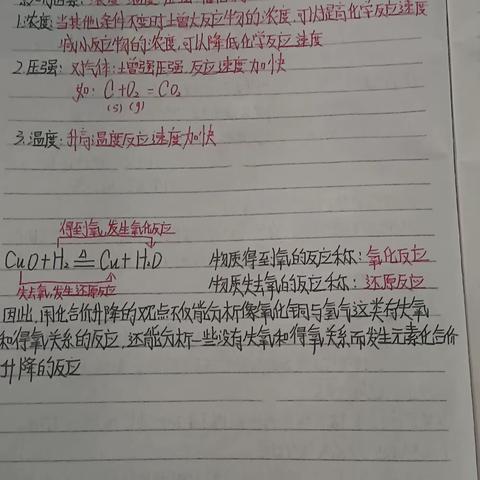 1.浓度:当其他条件不变时,增大反应物的浓度,可以提高化学反应速度
减小反应物的浓度,可以降低化学反应速度
2.压强:对气体:增强压强,反应速度加快
如:C+O₂=CO₂
(s) (g)
3.温度:升高温度反应速度加快
得到氧,发生氧化反应
CuO+H₂ ≜ Cu+H₂O 物质得到氧的反应称:氧化反应
失去氧,发生还原反应 物质失去氧的反应称:还原反应
因此,用化合价升降的观点不仅能分析像氧化铜与氢气这类有失氧
和得氧关系的反应,还能分析一些没有失氧和得氧关系而发生元素化合价
升降的反应